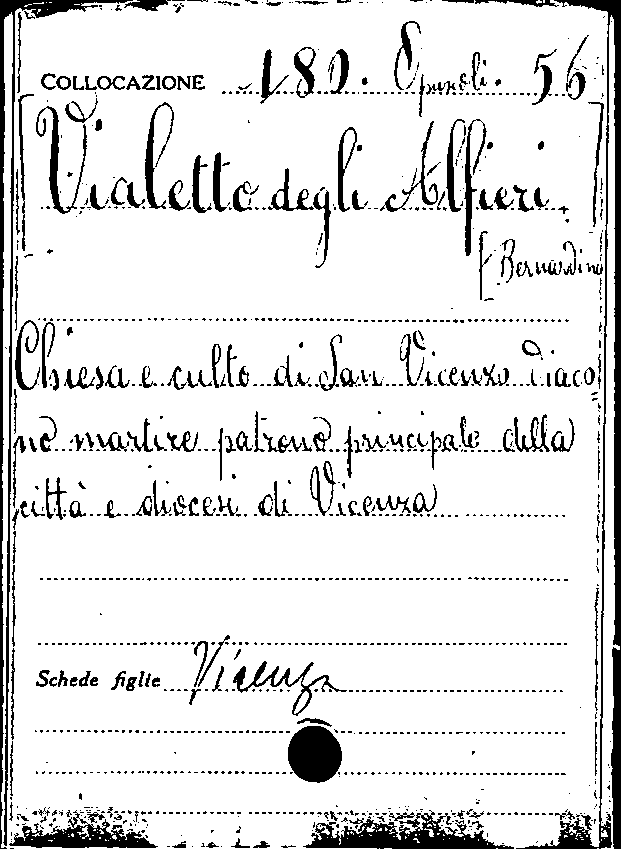 COLLOCAZIONE 189. Opuscoli. 56
[Vialetto degli Alfieri]
[Bernardino
Chiesa e culto di San Vicenzo Diaco=
no martire patrono principale della
città e diocesi di Vicenza
Schede figlie Vicenza